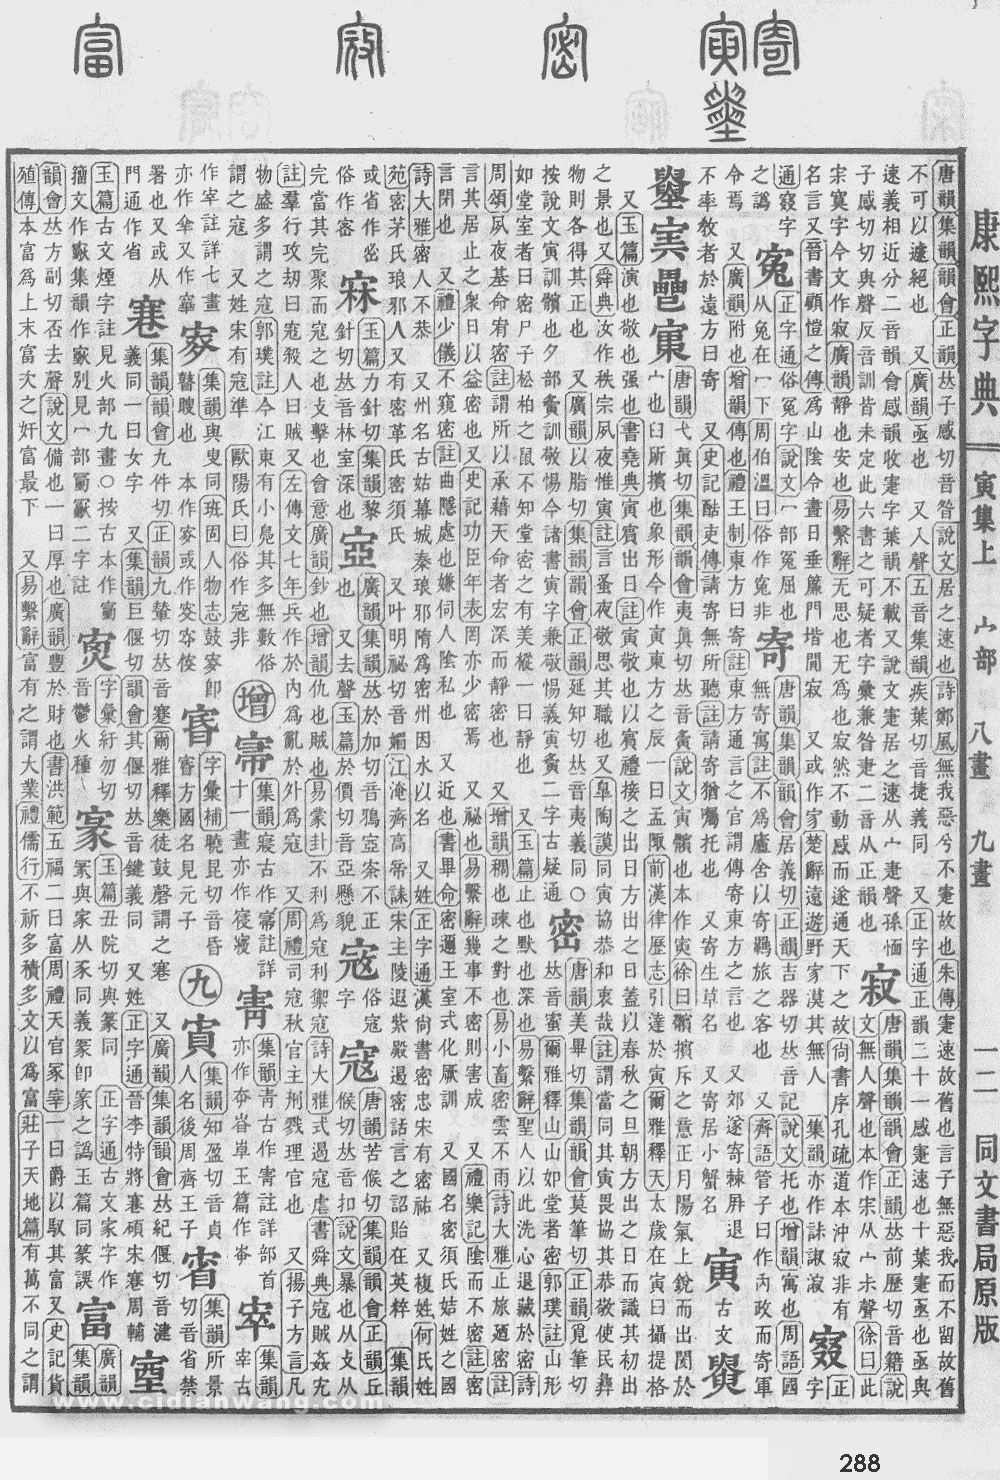 寄
寅
𡩟
密
寇
富
康熙字典
寅集上
宀部
八畫
九畫
一二
同文書局原版
唐韻集韻韻會正韻𠀤子感切音昝說文居之速也詩鄭風無我惡兮不寁故也朱傳寁速故舊也言子無惡我而不留故舊
不可以遽絕也 又廣韻亟也 又入聲五音集韻疾葉切音捷義同 又正字通正韻二十一感寁速也十葉寁亟也亟與
速義相近分二音韻會感韻收寁字葉韻不載又說文寁居之速从宀疌聲孫愐
子感切切與聲反音訓皆未定此六書之可疑者字彙兼昝疌二音从正韻也
寂
唐韻集韻韻會正韻𠀤前歷切音籍說
文無人聲也本作宗从宀尗聲徐曰此
宋寞字今文作寂廣韻靜也安也易繫辭无思也无為也寂然不動感而遂通天下之故尙書序孔疏道本沖寂非有
名言又晉書顧愷之傳為山陰令晝日垂簾門堦閒寂 又或作宋楚辭遠遊野宋漠其無人
之譌
冤
从兔在冖下周伯溫曰俗作寃非
寄
唐韻集韻韻會居義切正韻吉器切𠀤音記說文托也增韻寓也周語國
無寄寓註不為廬舍以寄羈旅之客也 又齊語管子曰作內政而寄軍
令焉 又廣韻附也增韻傳也禮王制東方曰寄註東方通言之官謂傳寄東方之言也 又郊遂寄棘屛退
不率敎者於遠方曰寄 又史記酷吏傳請寄無所聽註請寄猶囑托也 又寄生草名 又寄居小蟹名
寅
古文
唐韻弋眞切集韻韻會夷眞切𠀤音夤說文寅髕也本作寅徐曰髕擯斥之意正月陽氣上銳而出閡於
宀也臼所擯也象形今作寅東方之辰一曰孟陬前漢律歷志引達於寅爾雅釋天太歲在寅曰攝提格
又玉篇演也敬也强也書堯典寅賓出日註寅敬也以賓禮接之出日方出之日蓋以春秋之旦朝方出之日而識其初出
之景也又舜典汝作秩宗夙夜惟寅註言蚤夜敬思其職也又臯陶謨同寅協恭和衷哉註謂當同其寅畏協其恭敬使民彝
物則各得其正也 又廣韻以脂切集韻韻會正韻延知切𠀤音夷義同○
按說文寅訓髕也夕部夤訓敬惕今諸書寅字兼敬惕義寅夤二字古疑通
密
唐韻美畢切集韻韻會莫筆切正韻覓筆切
𠀤音蜜爾雅釋山山如堂者密郭璞註山形
如堂室者曰密尸子松柏之鼠不知堂密之有美樅一曰靜也 又玉篇止也默也深也易繫辭聖人以此洗心退藏於密詩
周頌夙夜基命宥密註謂所以承藉天命者宏深而靜密也 又增韻稠也疎之對也易小畜密雲不雨詩大雅止旅廼密註
言其居止之衆日以益密也又史記功臣年表罔亦少密焉 又祕也易繫辭幾事不密則害成 又禮樂記陰而不密註密之
言閉也 又禮少儀不窺密註曲隱處也嫌伺人陰私也 又近也書畢命密邇王室式化厥訓 又國名密須氏姞姓之國
詩大雅密人不恭 又州名古姑幕城秦琅邪隋為密州因水以名 又姓正字通漢尙書密忠宋有密祐 又複姓何氏姓
苑密茅氏琅邪人又有密革氏密須氏 又叶明祕切音媚江淹齊高帝誄宋主陵遐紫嚴遏密話言之詔貽在英粹 集韻
或省作宓
俗作密
㝝
玉篇力針切集韻黎
針切𠀤音林室深也
廣韻集韻𠀤於加切音鴉窊寀不正
也 又去聲玉篇於價切音亞懸貌
宼
俗寇
字
寇
唐韻苦候切集韻韻會正韻丘
候切𠀤音扣說文暴也从攴从
完當其完聚而寇之也攴擊也會意廣韻鈔也增韻仇也賊也易蒙卦不利為寇利禦寇詩大雅式遏寇虐書舜典寇賊姦宄
註羣行攻劫曰寇殺人曰賊又左傳文七年兵作於內為亂於外為寇 又周禮司寇秋官主刑戮理官也 又揚子方言凡
物盛多謂之寇郭璞註今江東有小鳧其多無數俗
謂之寇 又姓宋有寇準 歐陽氏曰俗作寇非
增
集韻寢古作㝲註詳
十一畫亦作寑㝲
集韻靑古作寈註詳部首
亦作㝳峇崋王篇作峯
宰古
作宰註詳七畫
亦作伞又作㝧
集韻與叟同班固人物志鼓㝮卽
瞽瞍也 本作㝮或作叜㝊傁
字彙補曉昆切音昏
睿方國名見元子
九
集韻知盈切音貞
人名後周齊王子
集韻所景
切音省禁
署也又或从
門通作省
寋
集韻韻會九件切正韻九輦切𠀤音蹇爾雅釋樂徒鼓磬謂之寋 又廣韻集韻韻會𠀤紀偃切音湕
義同一曰女字 又集韻巨偃切韻會其偃切𠀤音鍵義同 又姓正字通晉李特將寋碩宋寋周輔
玉篇古文煙字註見火部九畫○按古本作𡫼
籀文作㝪集韻作㝪別見宀部㝪㝪二字註
字彙紆勿切
音鬱火種
㝟
玉篇丑院切與篆同 正字通古文家字作
㒸與家从豕同義㒸卽家之譌玉篇同篆誤
富
廣韻
集韻
韻會𠀤方副切否去聲說文備也一曰厚也廣韻豐於財也書洪範五福二曰富周禮天官冢宰一曰爵以馭其富又史記貨
殖傳本富為上末富次之奸富最下 又易繫辭富有之謂大業禮儒行不祈多積多文以為富莊子天地篇有萬不同之謂
www.cidianwang.com
288